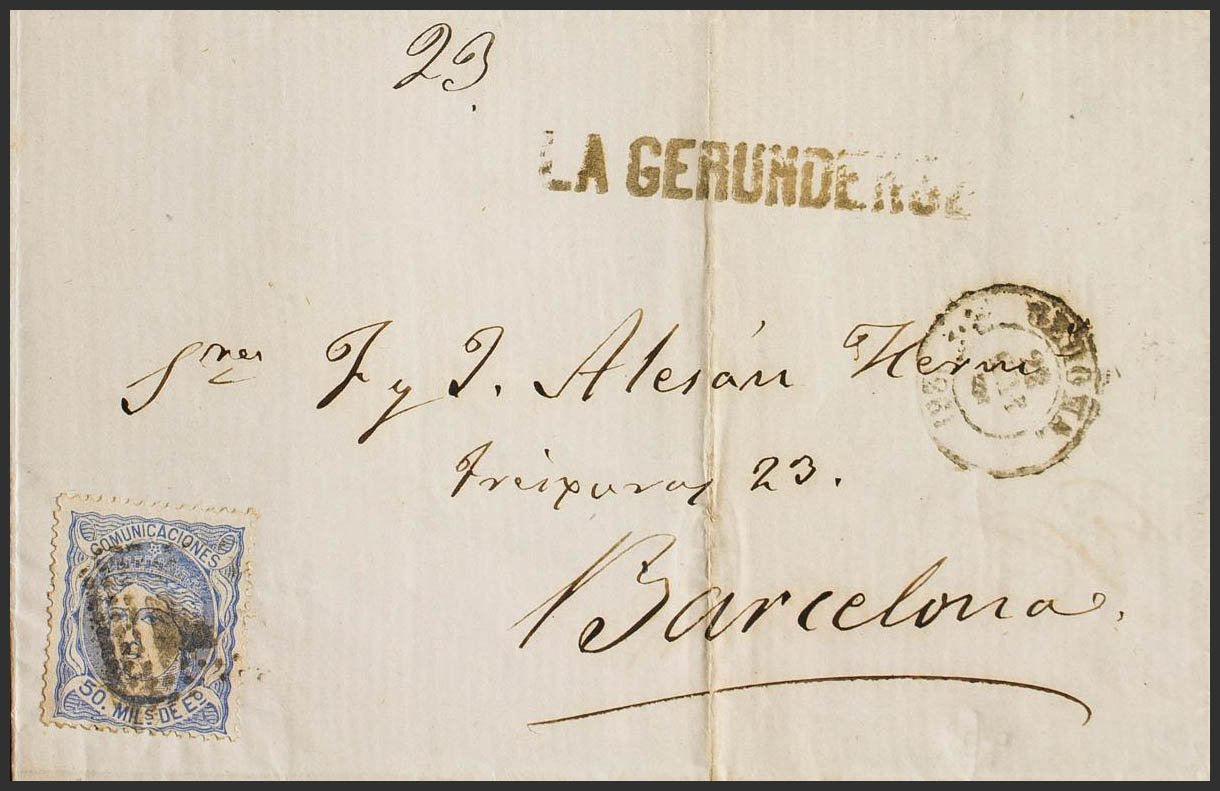 23.
LA GERUNDENSE
Sres F y J. Alesán Herms
Freixuras 23.
Barcelona.
COMUNICACIONES
50. MILS. DE EO.